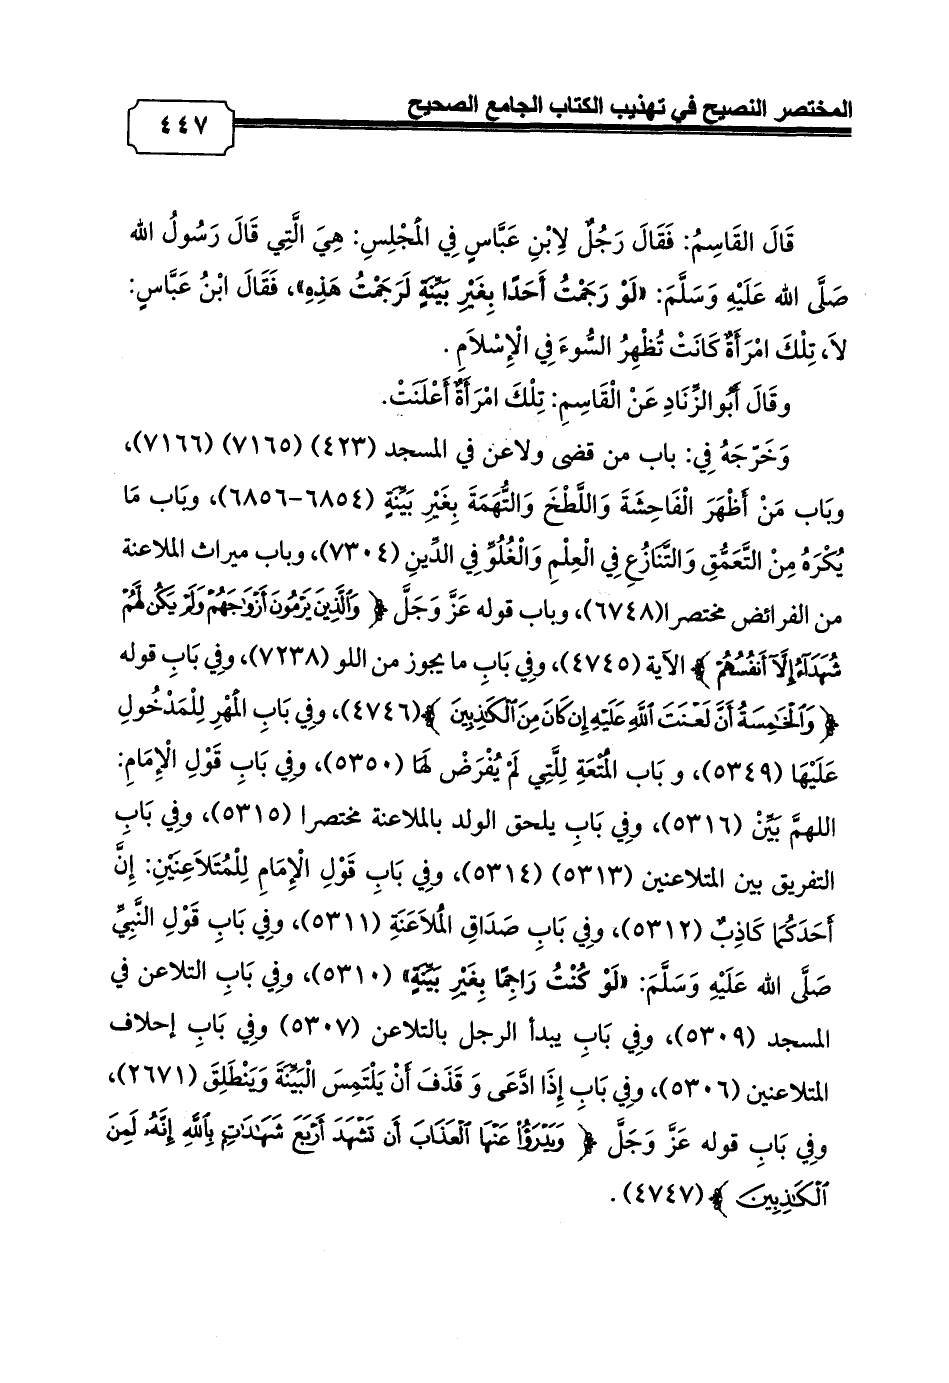 المختصر النصيح في تهذيب الكتاب الجامع الصحيح
٤٤٧
قَالَ القَاسِمُ: فَقَالَ رَجُلٌ لِابْنِ عَبَّاسٍ فِي المَجْلِسِ: هِيَ الَّتِي قَالَ رَسُولُ الله
صَلَّى الله عَلَيْهِ وَسَلَّمَ: «لَوْ رَجَمْتُ أَحَدًا بِغَيْرِ بَيِّنَةٍ لَرَجَمْتُ هَذِهِ»، فَقَالَ ابْنُ عَبَّاسٍ:
لاَ، تِلْكَ امْرَأَةٌ كَانَتْ تُظْهِرُ السُّوءَ فِي الْإِسْلاَمِ .
وقَالَ أَبُو الزِّنَادِ عَنْ الْقَاسِمِ: تِلْكَ امْرَأَةٌ أَعْلَنَتْ.
وَخَرَّجَهُ فِي: باب من قضى ولاعن في المسجد (٤٢٣) (٧١٦٥) (٧١٦٦)،
وبَاب مَنْ أَظْهَرَ الْفَاحِشَةَ وَاللَّطْخَ وَالتُّهَمَةَ بِغَيْرِ بَيِّنَةٍ (٦٨٥٤-٦٨٥٦)، وبَاب مَا
يُكْرَهُ مِنْ التَّعَمُّقِ وَالتَّنَازُعِ فِي الْعِلْمِ وَالْغُلُوِّ فِي الدِّينِ (٧٣٠٤)، وباب ميراث الملاعنة
من الفرائض مختصرا(٦٧٤٨)، وباب قوله عَزَّ وَجَلَّ ﴿ وَٱلَّذِينَ يَرْمُونَ أَزْوَٰجَهُمْ وَلَمْ يَكُن لَّهُمْ
شُهَدَآءُ إِلَّآ أَنفُسُهُمْ ﴾ الآية (٤٧٤٥)، وفي بَابِ ما يجوز من اللو (٧٢٣٨)، وفِي بَابِ قوله
﴿ وَٱلْخَٰمِسَةُ أَنَّ لَعْنَتَ ٱللَّهِ عَلَيْهِ إِن كَانَ مِنَ ٱلْكَٰذِبِينَ ﴾(٤٧٤٦)، وفِي بَابِ المَهْرِ لِلْمَدْخُولِ
عَلَيْهَا (٥٣٤٩)، و بَاب المُتْعَةِ لِلَّتِي لَمْ يُفْرَضْ لَهَا (٥٣٥٠)، وفِي بَابِ قَوْلِ الْإِمَامِ:
اللهمَّ بَيِّنْ (٥٣١٦)، وفِي بَابِ يلحق الولد بالملاعنة مختصرا (٥٣١٥)، وفِي بَابِ
التفريق بين المتلاعنين (٥٣١٣) (٥٣١٤)، وفِي بَابِ قَوْلِ الْإِمَامِ لِلْمُتَلَاعِنَيْنِ: إِنَّ
أَحَدَكُمَا كَاذِبٌ (٥٣١٢)، وفِي بَابِ صَدَاقِ المُلَاعَنَةِ (٥٣١١)، وفِي بَابِ قَوْلِ النَّبِيِّ
صَلَّى الله عَلَيْهِ وَسَلَّمَ: «لَوْ كُنْتُ رَاجِمًا بِغَيْرِ بَيِّنَةٍ» (٥٣١٠)، وفِي بَابِ التلاعن في
المسجد (٥٣٠٩)، وفِي بَابِ يبدأ الرجل بالتلاعن (٥٣٠٧) وفِي بَابِ إحلاف
المتلاعنين (٥٣٠٦)، وفِي بَابِ إِذَا ادَّعَى وَ قَذَفَ أَنْ يَلْتَمِسَ الْبَيِّنَةَ وَيَنْطَلِقَ (٢٦٧١)،
وفي بَابِ قوله عَزَّ وَجَلَّ ﴿ وَيَدْرَؤُا۟ عَنْهَا ٱلْعَذَابَ أَن تَشْهَدَ أَرْبَعَ شَهَٰدَٰتٍۭ بِٱللَّهِ إِنَّهُۥ لَمِنَ
ٱلْكَٰذِبِينَ ﴾(٤٧٤٧).